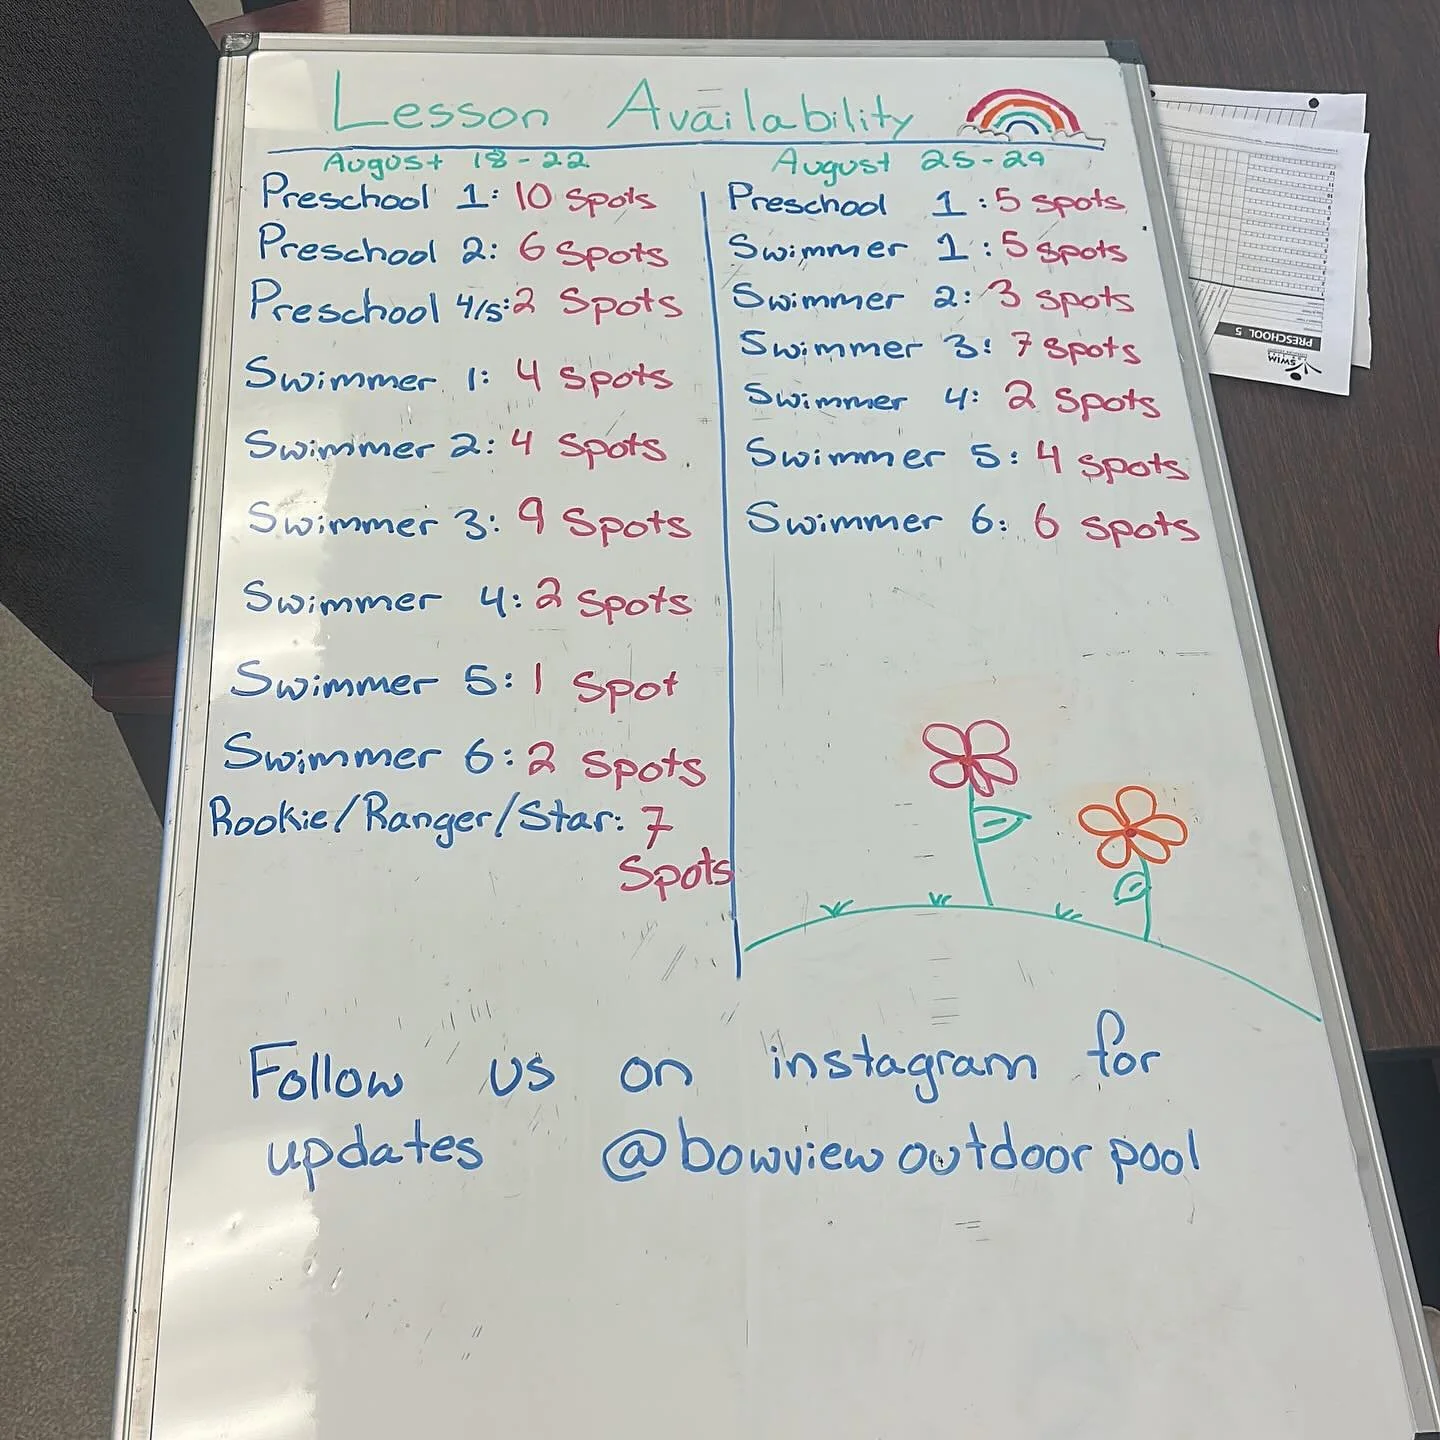 Lesson Availability
August 18-22
Preschool 1: 10 spots
Preschool 2: 6 spots
Preschool 4/5: 2 spots
Swimmer 1: 4 spots
Swimmer 2: 4 spots
Swimmer 3: 9 spots
Swimmer 4: 2 spots
Swimmer 5: 1 spot
Swimmer 6: 2 spots
Rookie/Ranger/Star: 7
spots
August 25-29
Preschool 1: 5 spots
Swimmer 1: 5 spots
Swimmer 2: 3 spots
Swimmer 3: 7 spots
Swimmer 4: 2 spots
Swimmer 5: 4 spots
Swimmer 6: 6 spots
Follow us on instagram for
updates @bowviewoutdoorpool
PRESCHOOL 5
SWIM